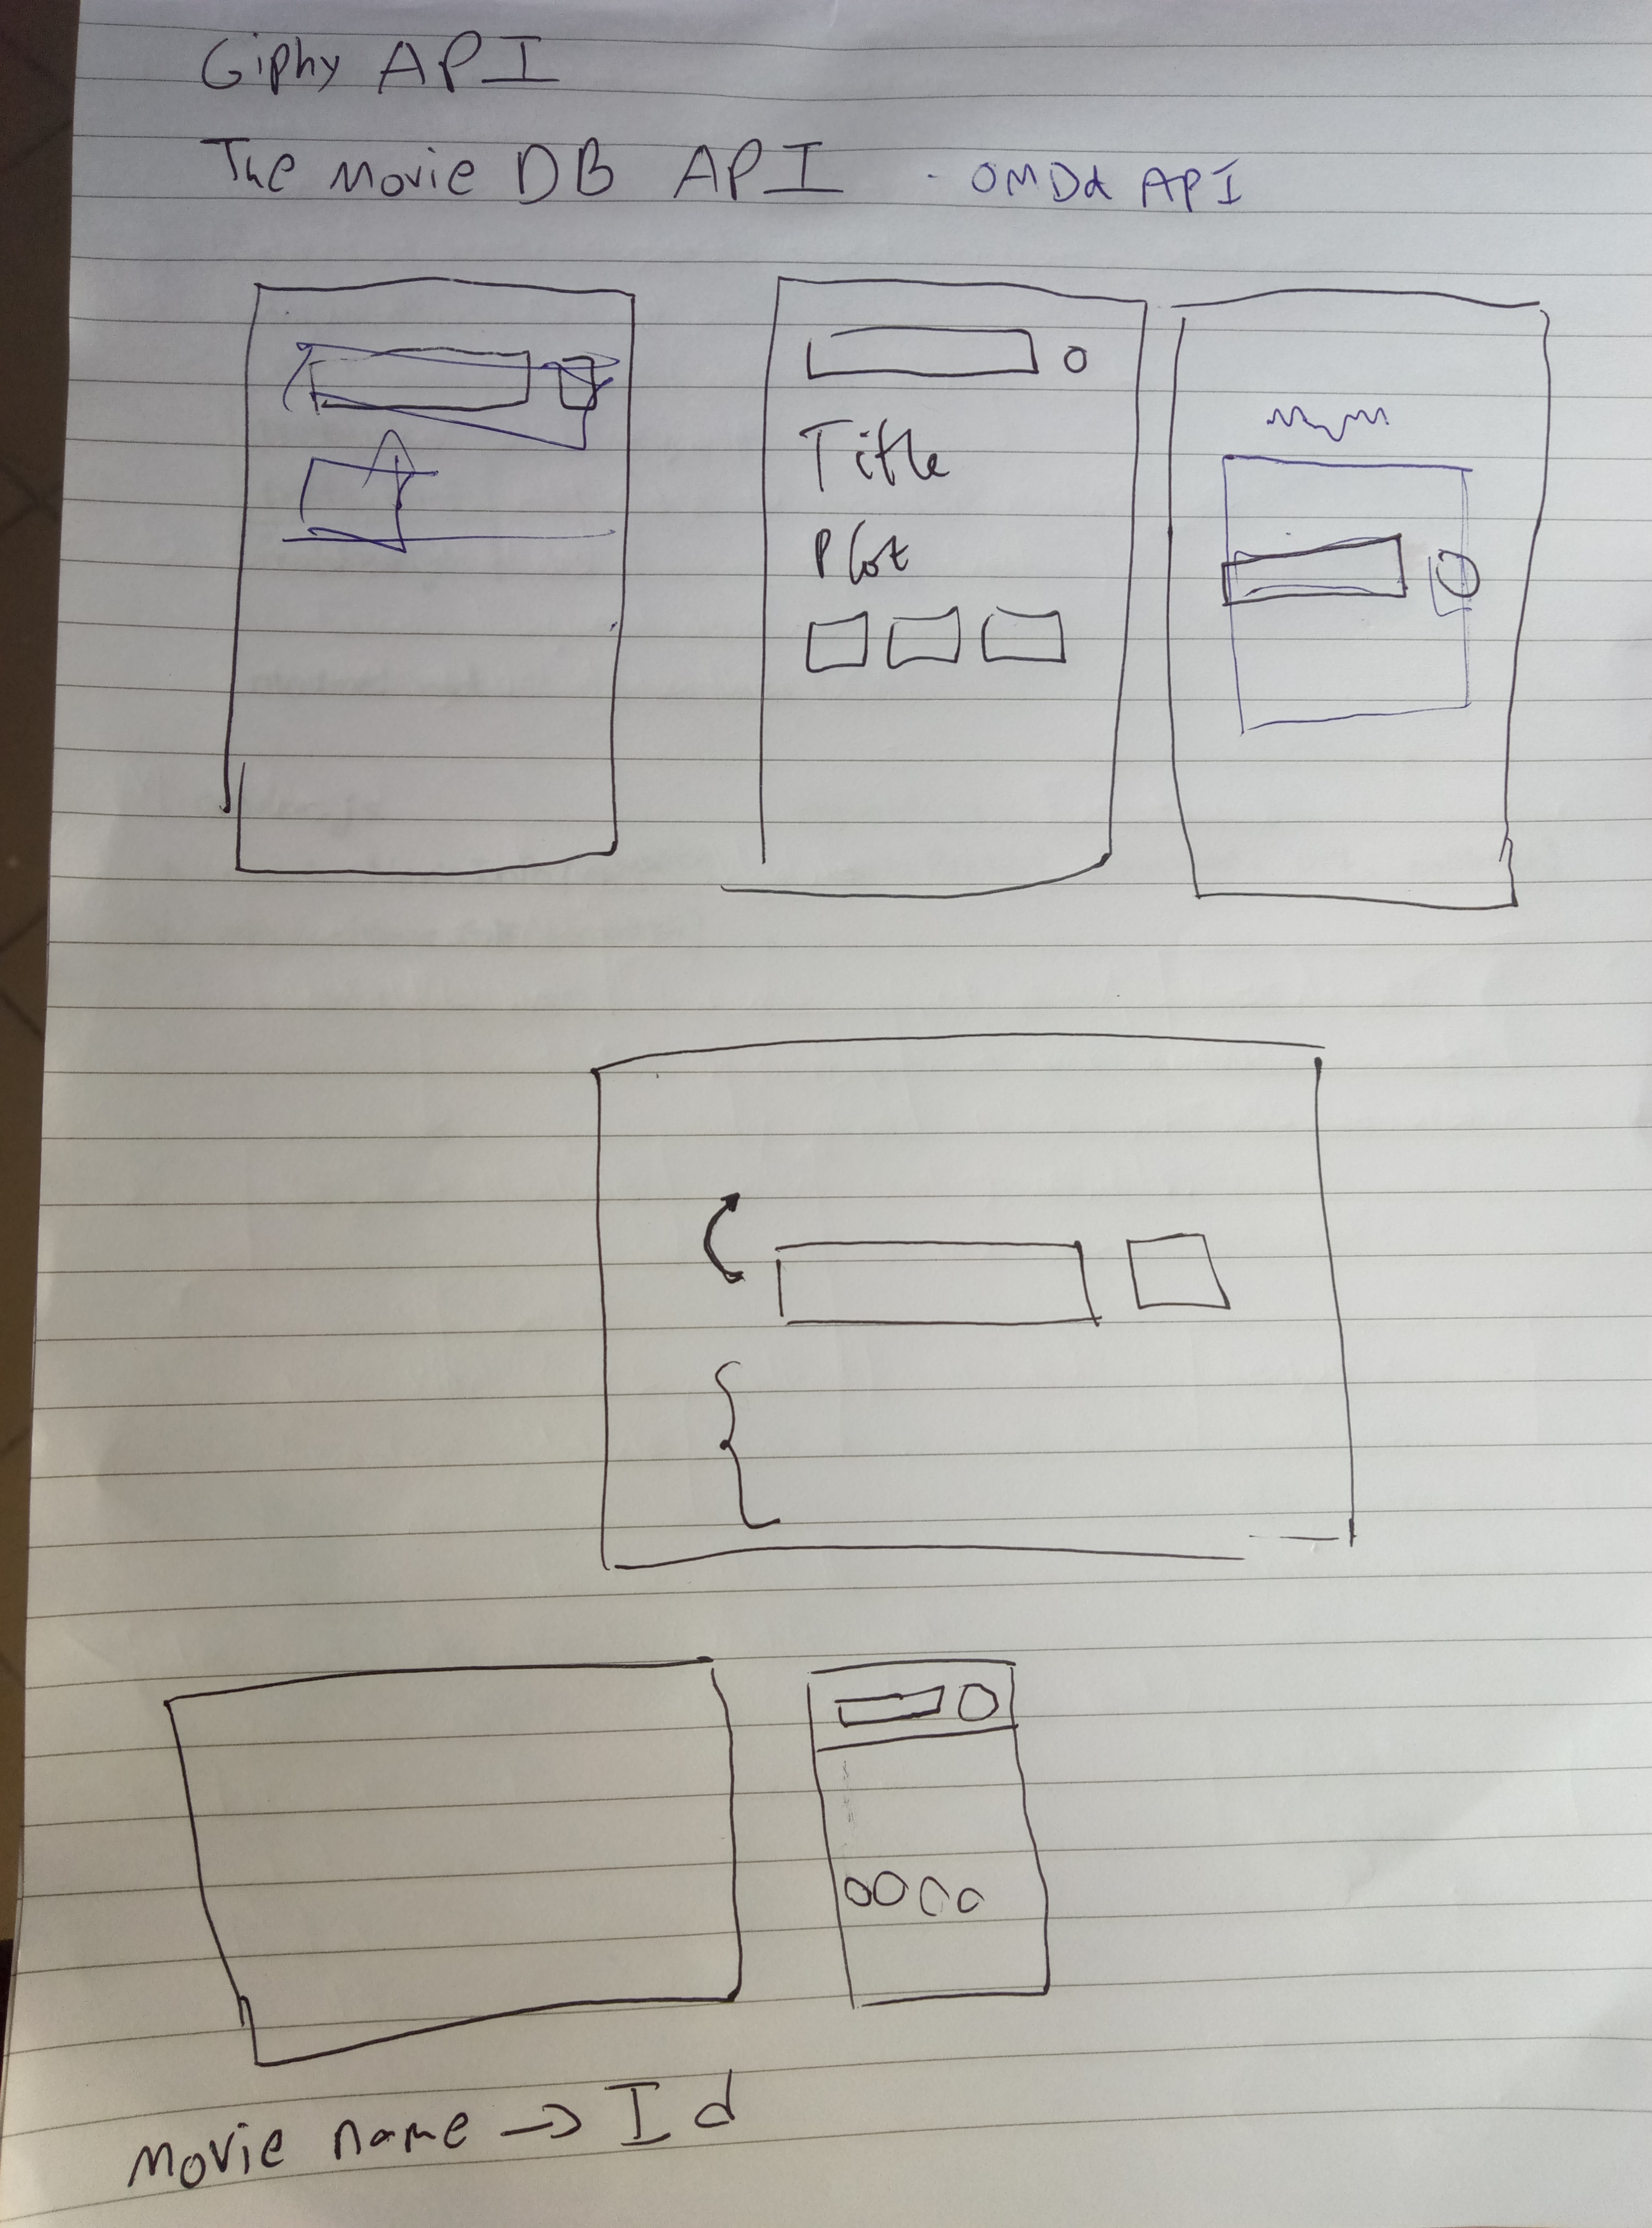 Giphy API
The Movie DB API - OMDd API
Title
Plot
Movie name → Id